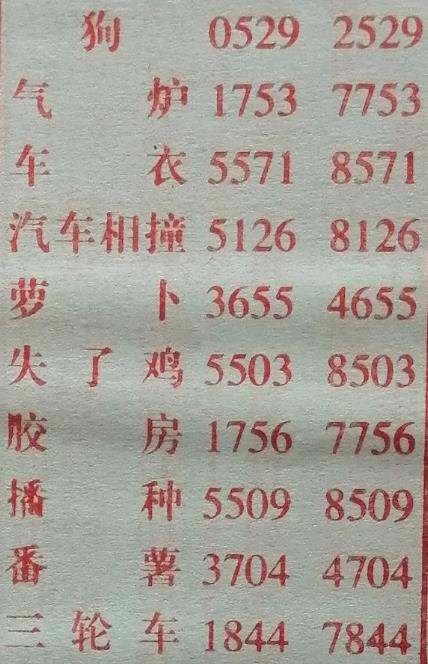 狗 0529 2529
气炉 1753 7753
车衣 5571 8571
汽车相撞 5126 8126
萝卜 3655 4655
失了鸡 5503 8503
胶房 1756 7756
播种 5509 8509
番薯 3704 4704
三轮车 1844 7844